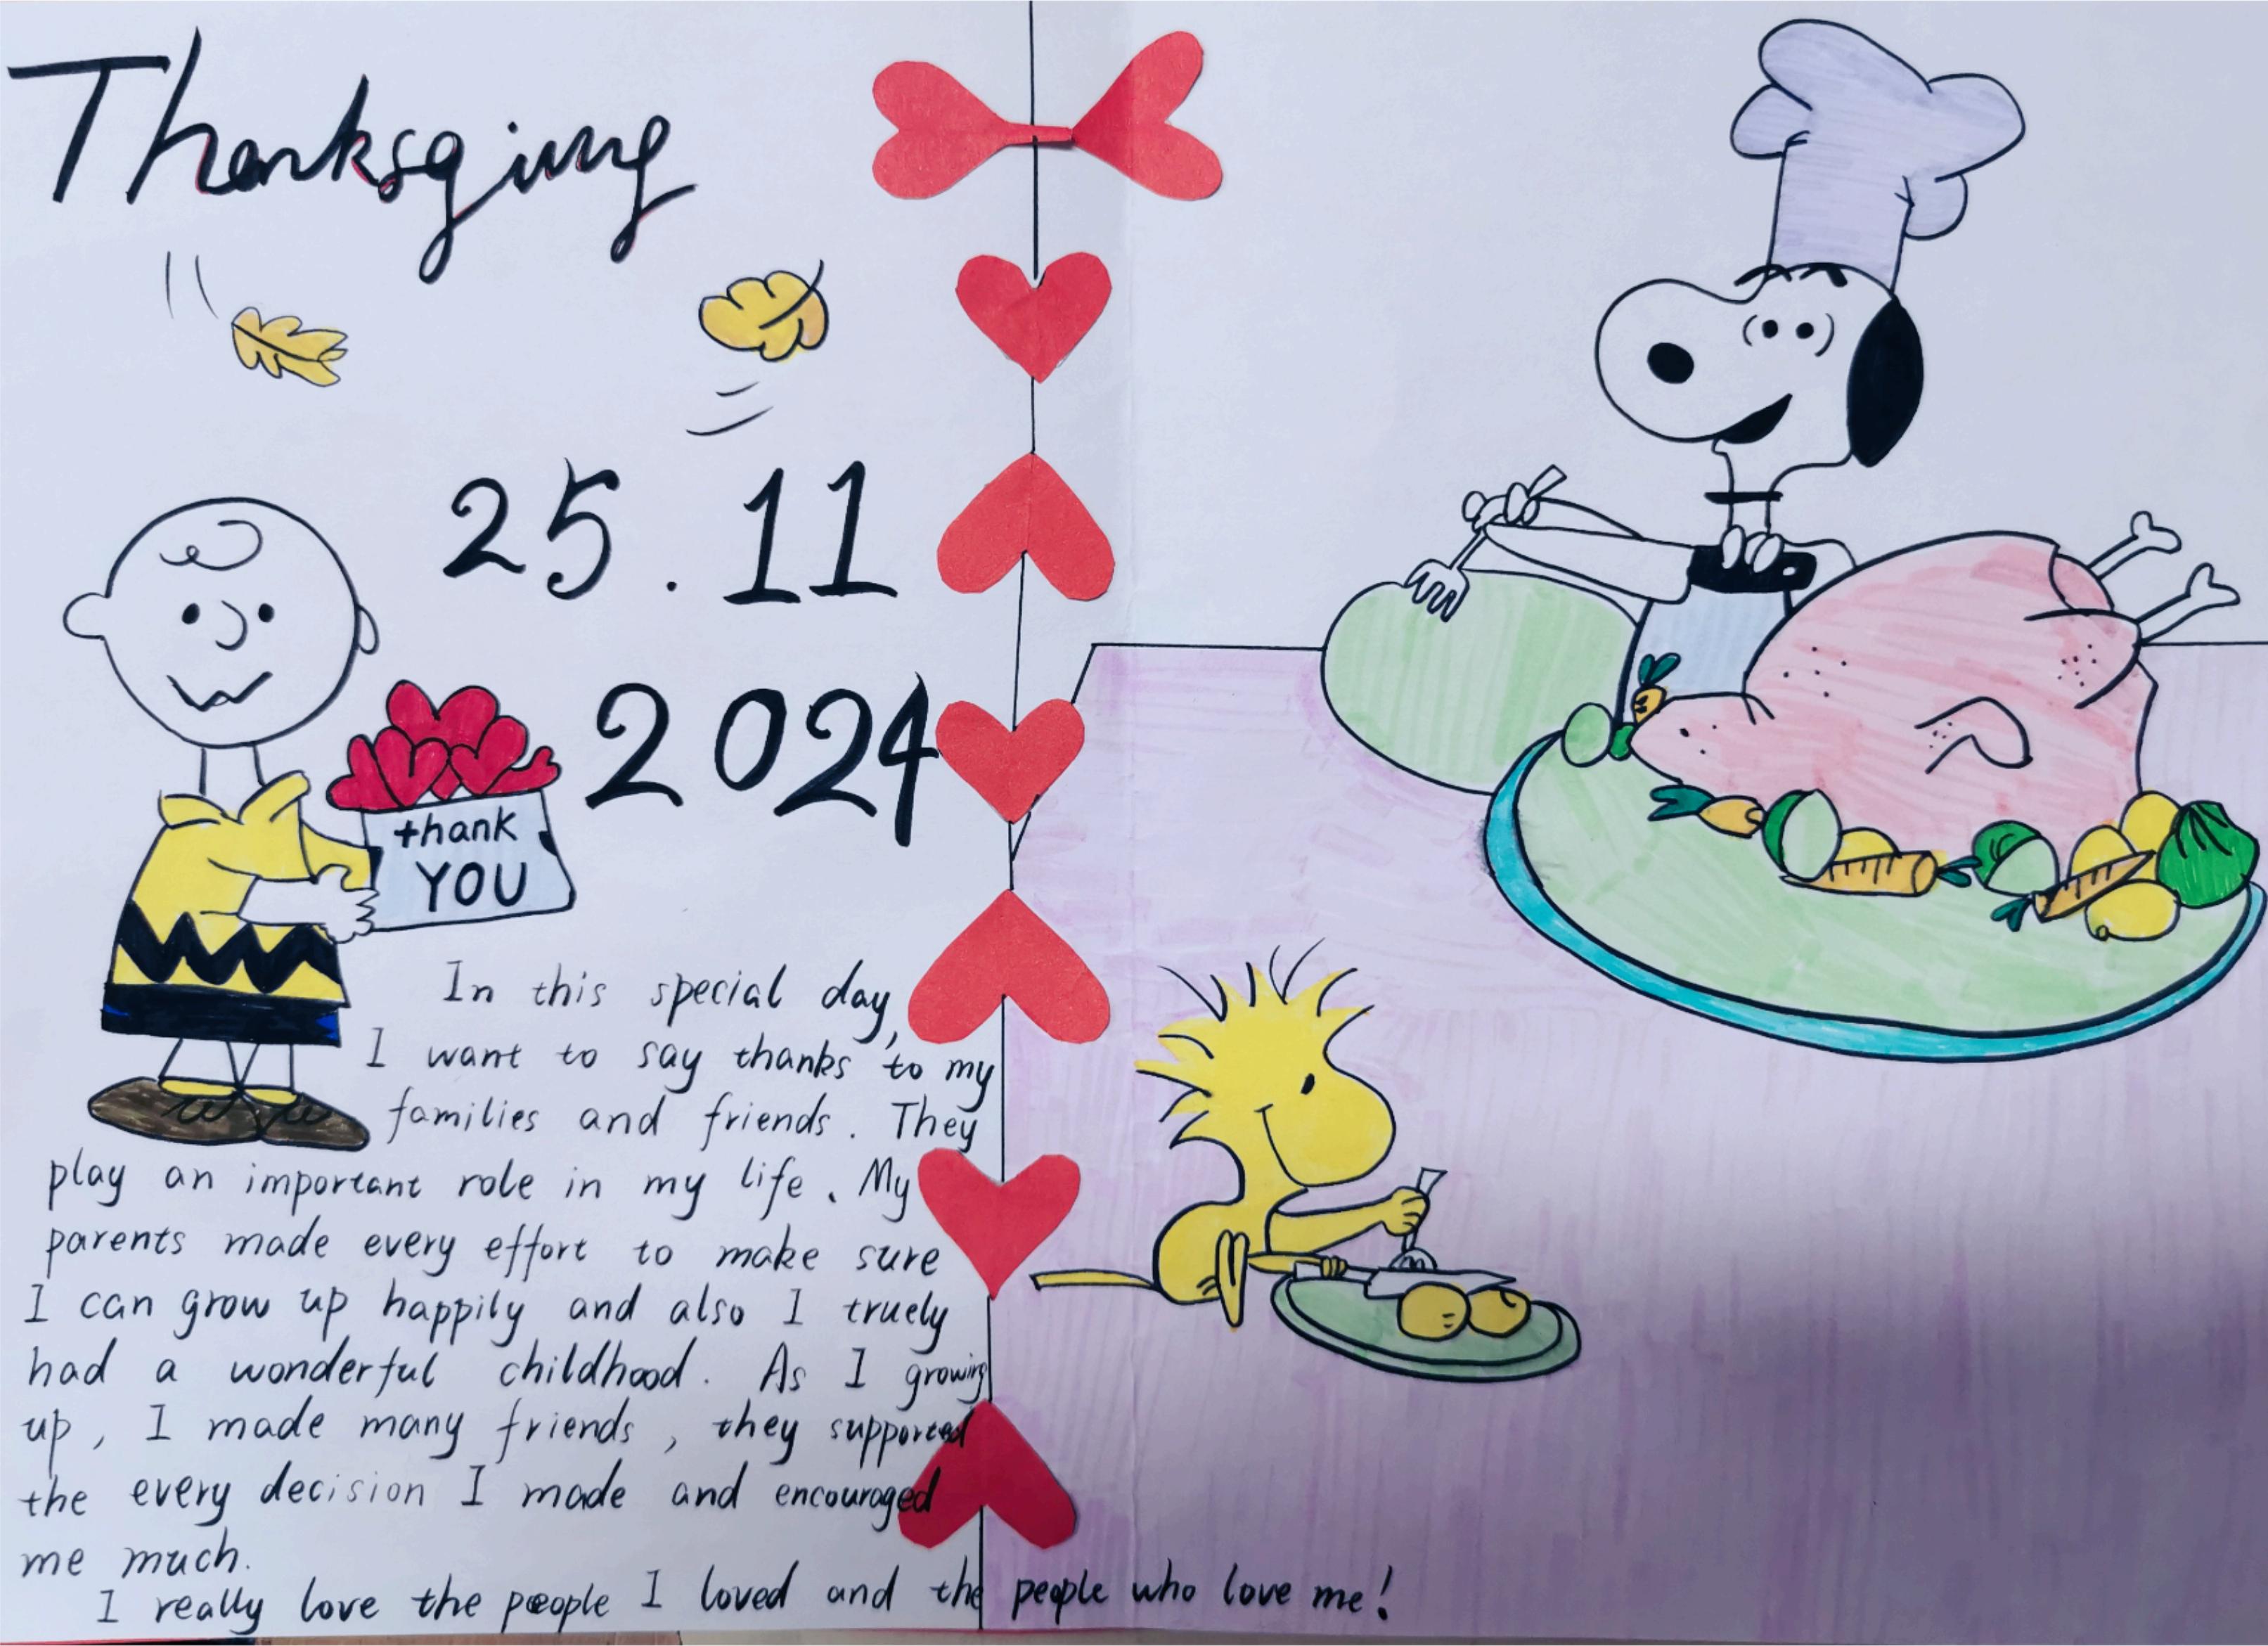 Thanksgiving
25.11
2024
thank
YOU
In this special day,
I want to say thanks to my
families and friends. They
play an important role in my life. My
parents made every effort to make sure
I can grow up happily and also I truely
had a wonderful childhood. As I growing
up, I made many friends, they supported
the every decision I made and encouraged
me much.
I really love the people I loved and the people who love me!